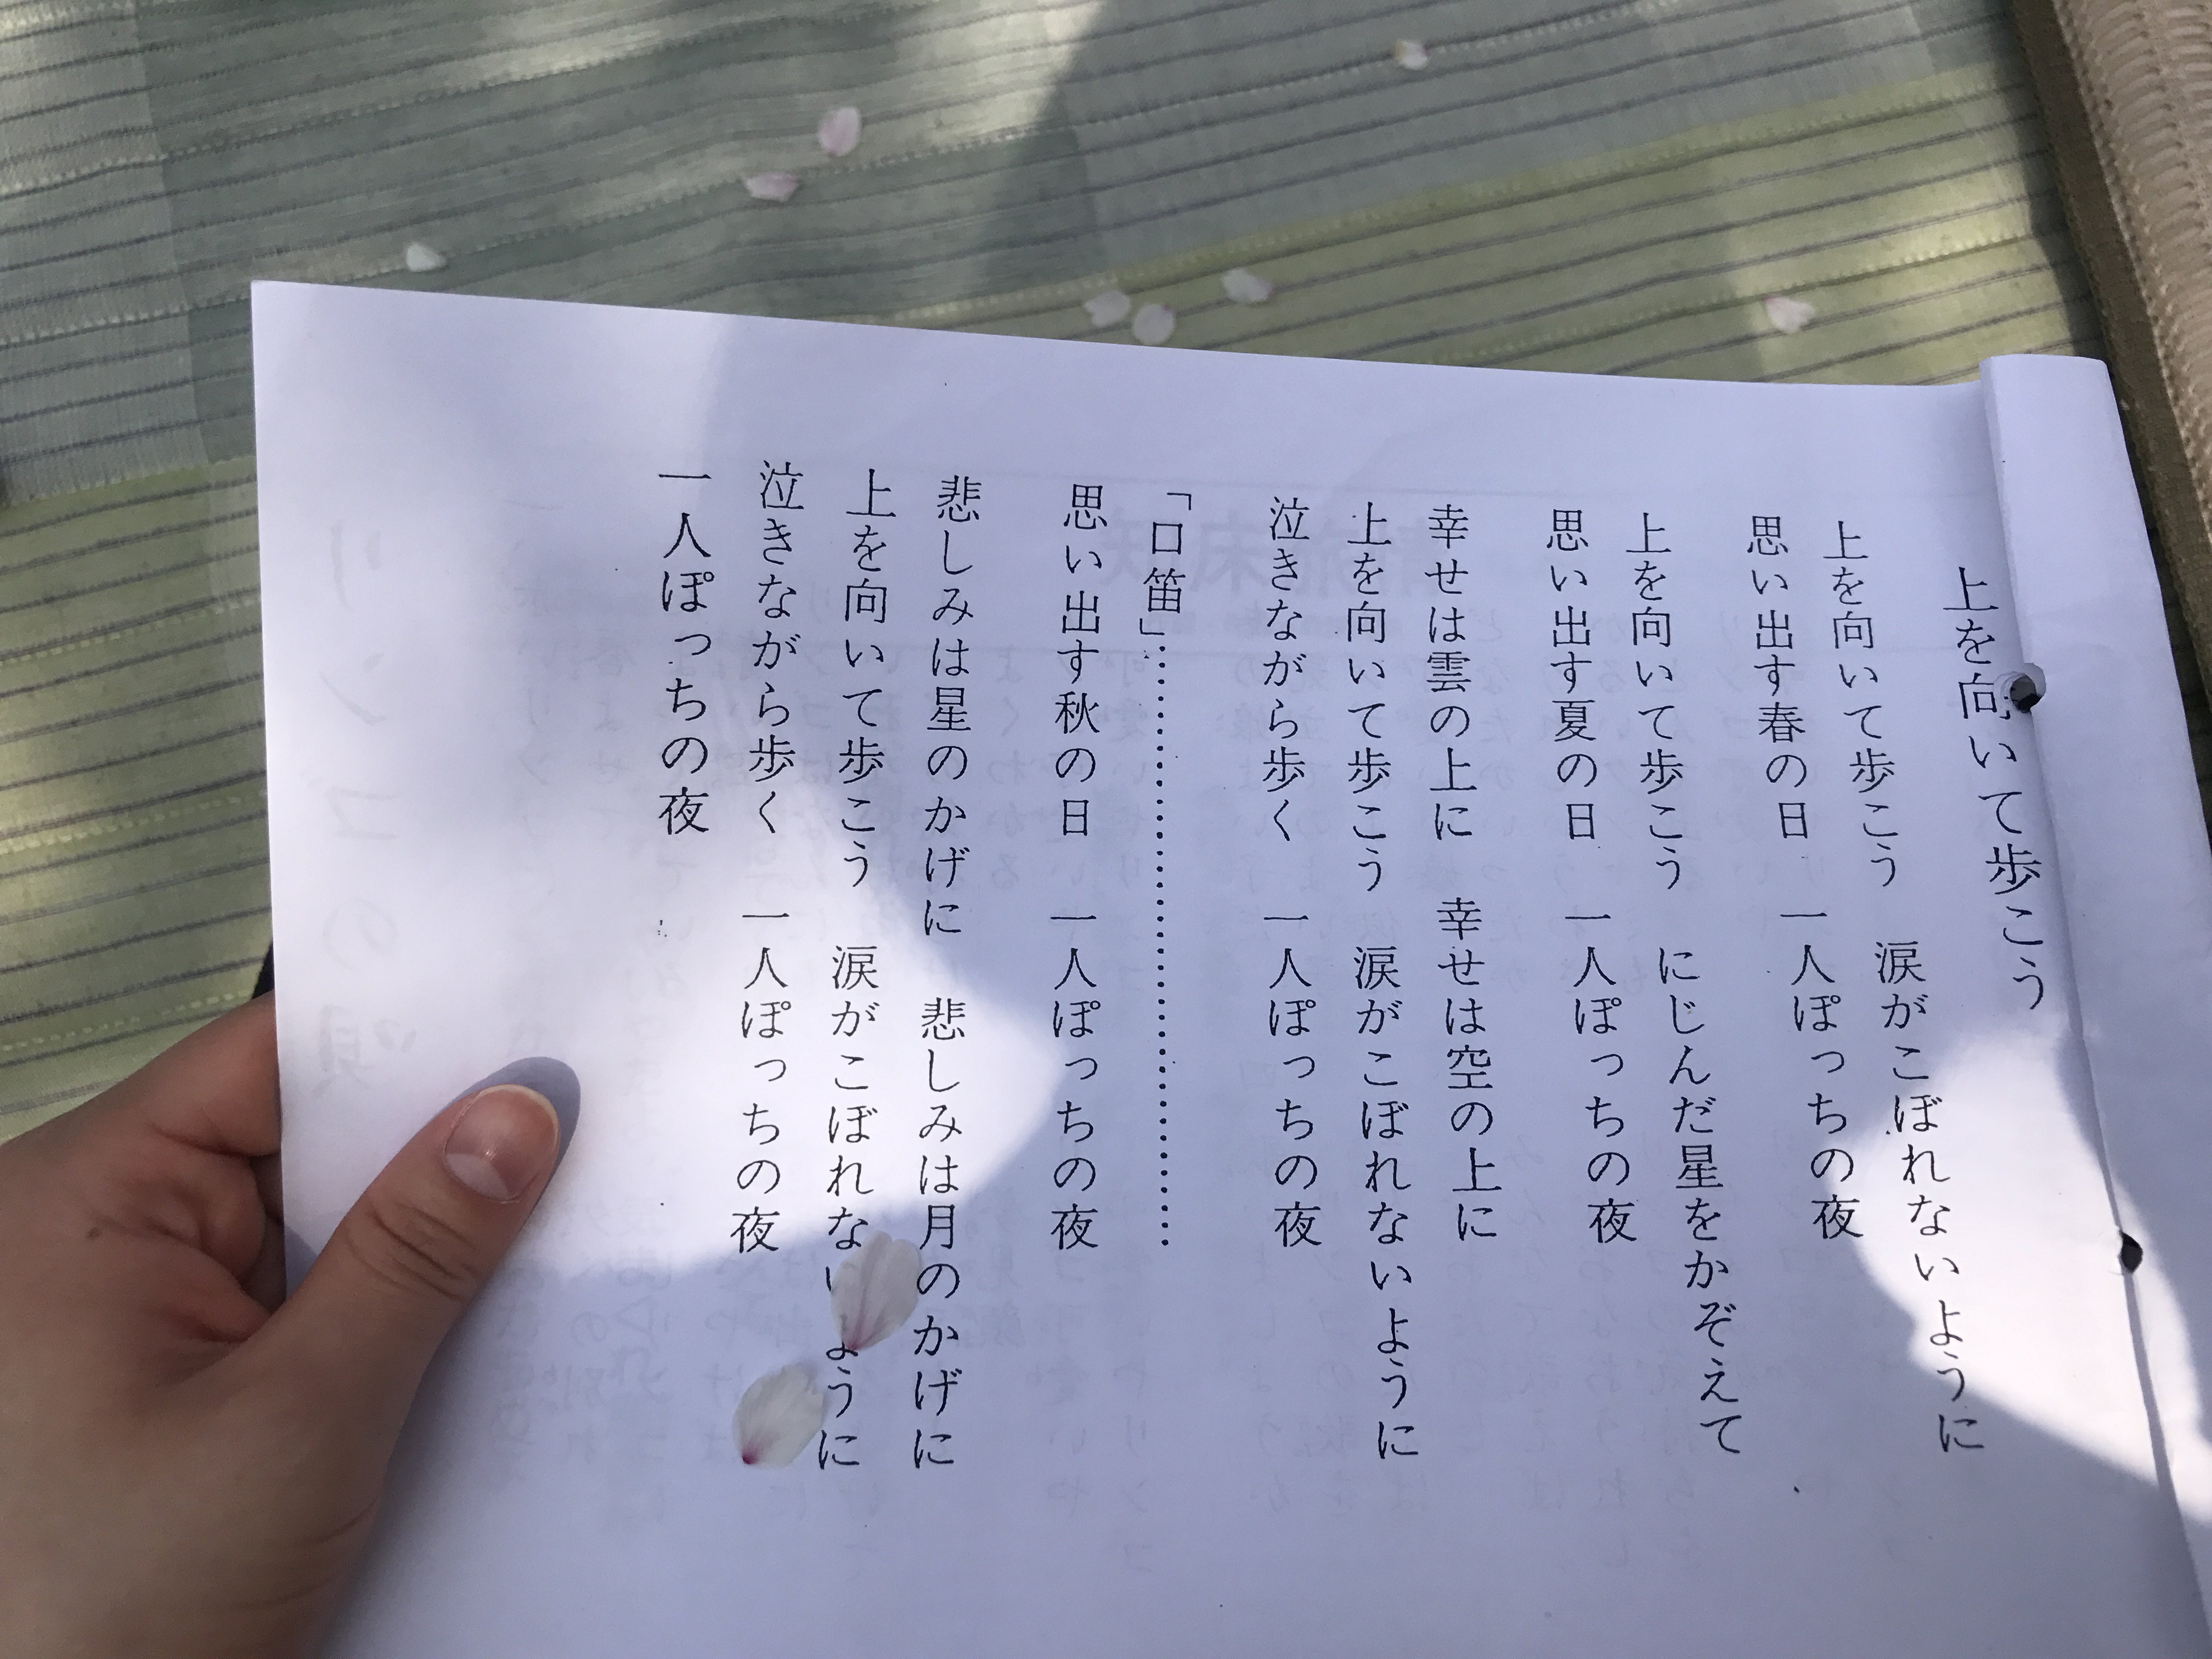 上を向いて歩こう
上を向いて歩こう 涙がこぼれないように
思い出す春の日 一人ぽっちの夜
上を向いて歩こう にじんだ星をかぞえて
思い出す夏の日 一人ぽっちの夜
幸せは雲の上に 幸せは空の上に
上を向いて歩こう 涙がこぼれないように
泣きながら歩く 一人ぽっちの夜
「口笛」……………………
思い出す秋の日 一人ぽっちの夜
悲しみは星のかげに 悲しみは月のかげに
上を向いて歩こう 涙がこぼれないように
泣きながら歩く 一人ぽっちの夜
一人ぽっちの夜